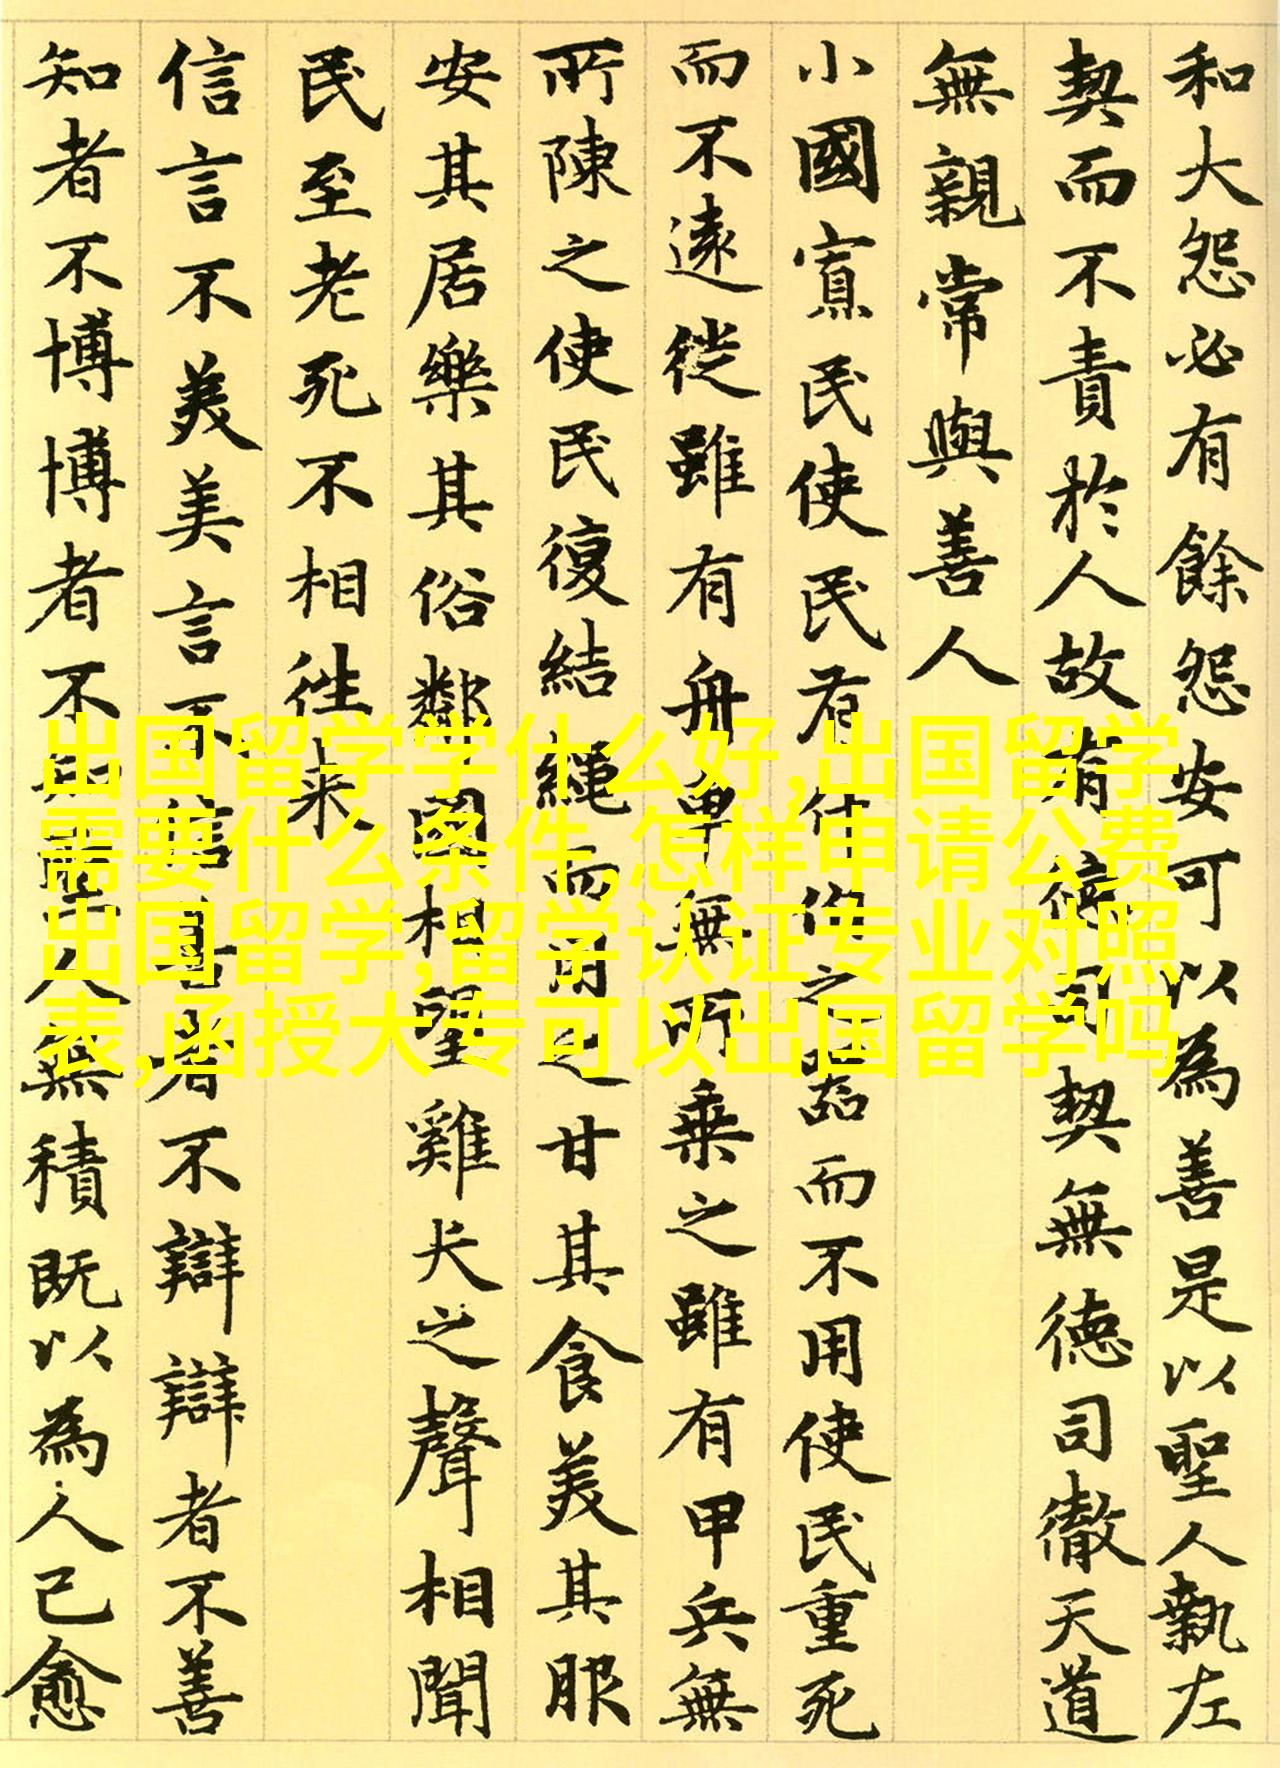 和大怨必有餘怨安可以為善是以聖人執左
契而不責於人故有德司契無德司徹天道
無親常與善人
小國寡民使民有什伯之器而不用使民重死
而不遠徙雖有舟車無所乗之雖有甲兵無
所陳之使民復結繩而用之甘其食美其服
安其居樂其俗鄰國相望雞犬之聲相聞
民至老死不相往来
信言不美美言不信善者不辯辯者不善
知者不博博者不知聖人無積既以為人己愈
出国留学学什么好,出国留学
需要什么条件,怎样申请公费
出国留学,留学认证专业对照
表,函授大专可以出国留学吗